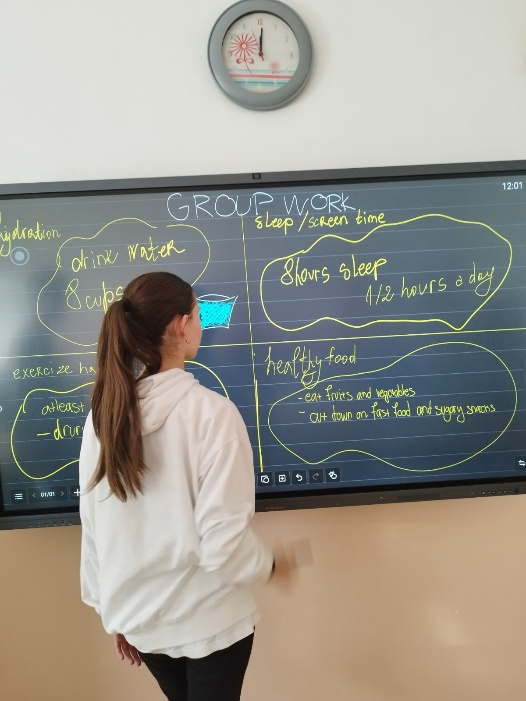 12:01
GROUP WORK
hydration
drink water
8 cups
sleep/screen time
8hours sleep
1/2 hours a day
exercize ha
atleast
- drun
healthy food
- eat fruits and vegetables
- cut down on fast food and sugary snacks
01/01
12